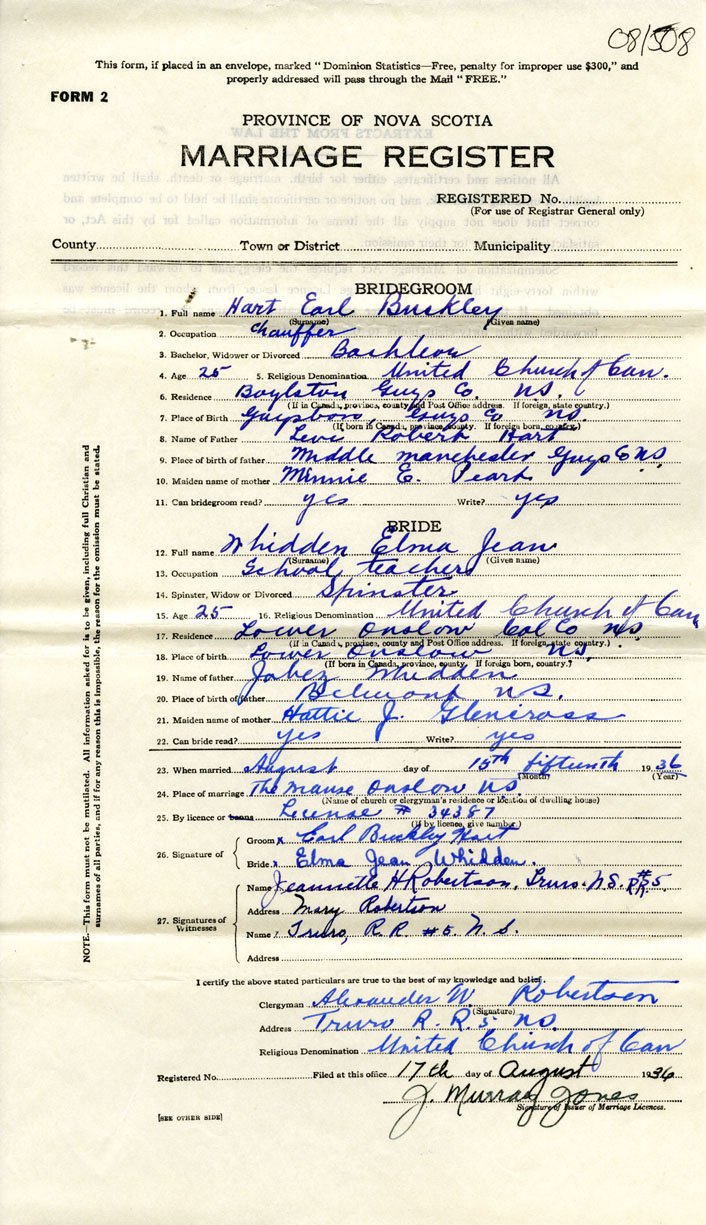 08/508
This form, if placed in an envelope, marked "Dominion Statistics—Free, penalty for improper use $300," and
properly addressed will pass through the Mail "FREE."
FORM 2
PROVINCE OF NOVA SCOTIA
MARRIAGE REGISTER
REGISTERED No.
(For use of Registrar General only)
County Town or District Municipality
BRIDEGROOM
1. Full name Hart Earl Buckley
(Surname) (Given name)
2. Occupation Chauffer
3. Bachelor, Widower or Divorced Bachleor
4. Age 25 5. Religious Denomination United Church of Can.
6. Residence Boylston Guys Co. NS.
(If in Canada, province, county and Post Office address. If foreign, state country.)
7. Place of Birth Guysboro, Guys Co NS.
(If born in Canada, province, county. If foreign born, country.)
8. Name of Father Levi Robert Hart
9. Place of birth of father Middle Manchester Guys Co NS
10. Maiden name of mother Minnie E. Peart
11. Can bridegroom read? yes Write? yes
BRIDE
12. Full name Whidden Elma Jean
(Surname) (Given name)
13. Occupation School teacher
14. Spinster, Widow or Divorced Spinster
15. Age 25 16. Religious Denomination United Church of Can
17. Residence Lower Onslow Col Co NS
(If in Canada, province, county and Post Office address. If foreign, state country.)
18. Place of birth Lower Onslow NS.
(If born in Canada, province, county. If foreign born, country.?
19. Name of father Jabez Whidden
20. Place of birth of father Belmont NS.
21. Maiden name of mother Hattie J. Glencross
22. Can bride read? yes Write? yes
23. When married August day of 15th fifteenth 1936
(Month) (Year)
24. Place of marriage The Manse Onslow NS
(Name of church or clergyman's residence or location of dwelling house)
25. By licence or banns License # 34387
(If by licence, give number)
26. Signature of Groom x Earl Buckley Hart
Bride x Elma Jean Whidden.
27. Signatures of Witnesses
Name Jeannette H Robertson, Truro. N.S. R.R. #5.
Address Mary Robertson
Name Truro, R.R. #5. N.S.
Address
I certify the above stated particulars are true to the best of my knowledge and belief.
Clergyman Alexander W. Robertson
(Signature)
Address Truro R.R. 5 NS.
Religious Denomination United Church of Can
Registered No. Filed at this office 17th day of August 1936
J. Murray Jones
Signature of Issuer of Marriage Licences.
[SEE OTHER SIDE]
NOTE.—This form must not be mutilated. All information asked for is to be given, including full Christian and
surnames of all parties, and if for any reason this is impossible, the reason for the omission must be stated.